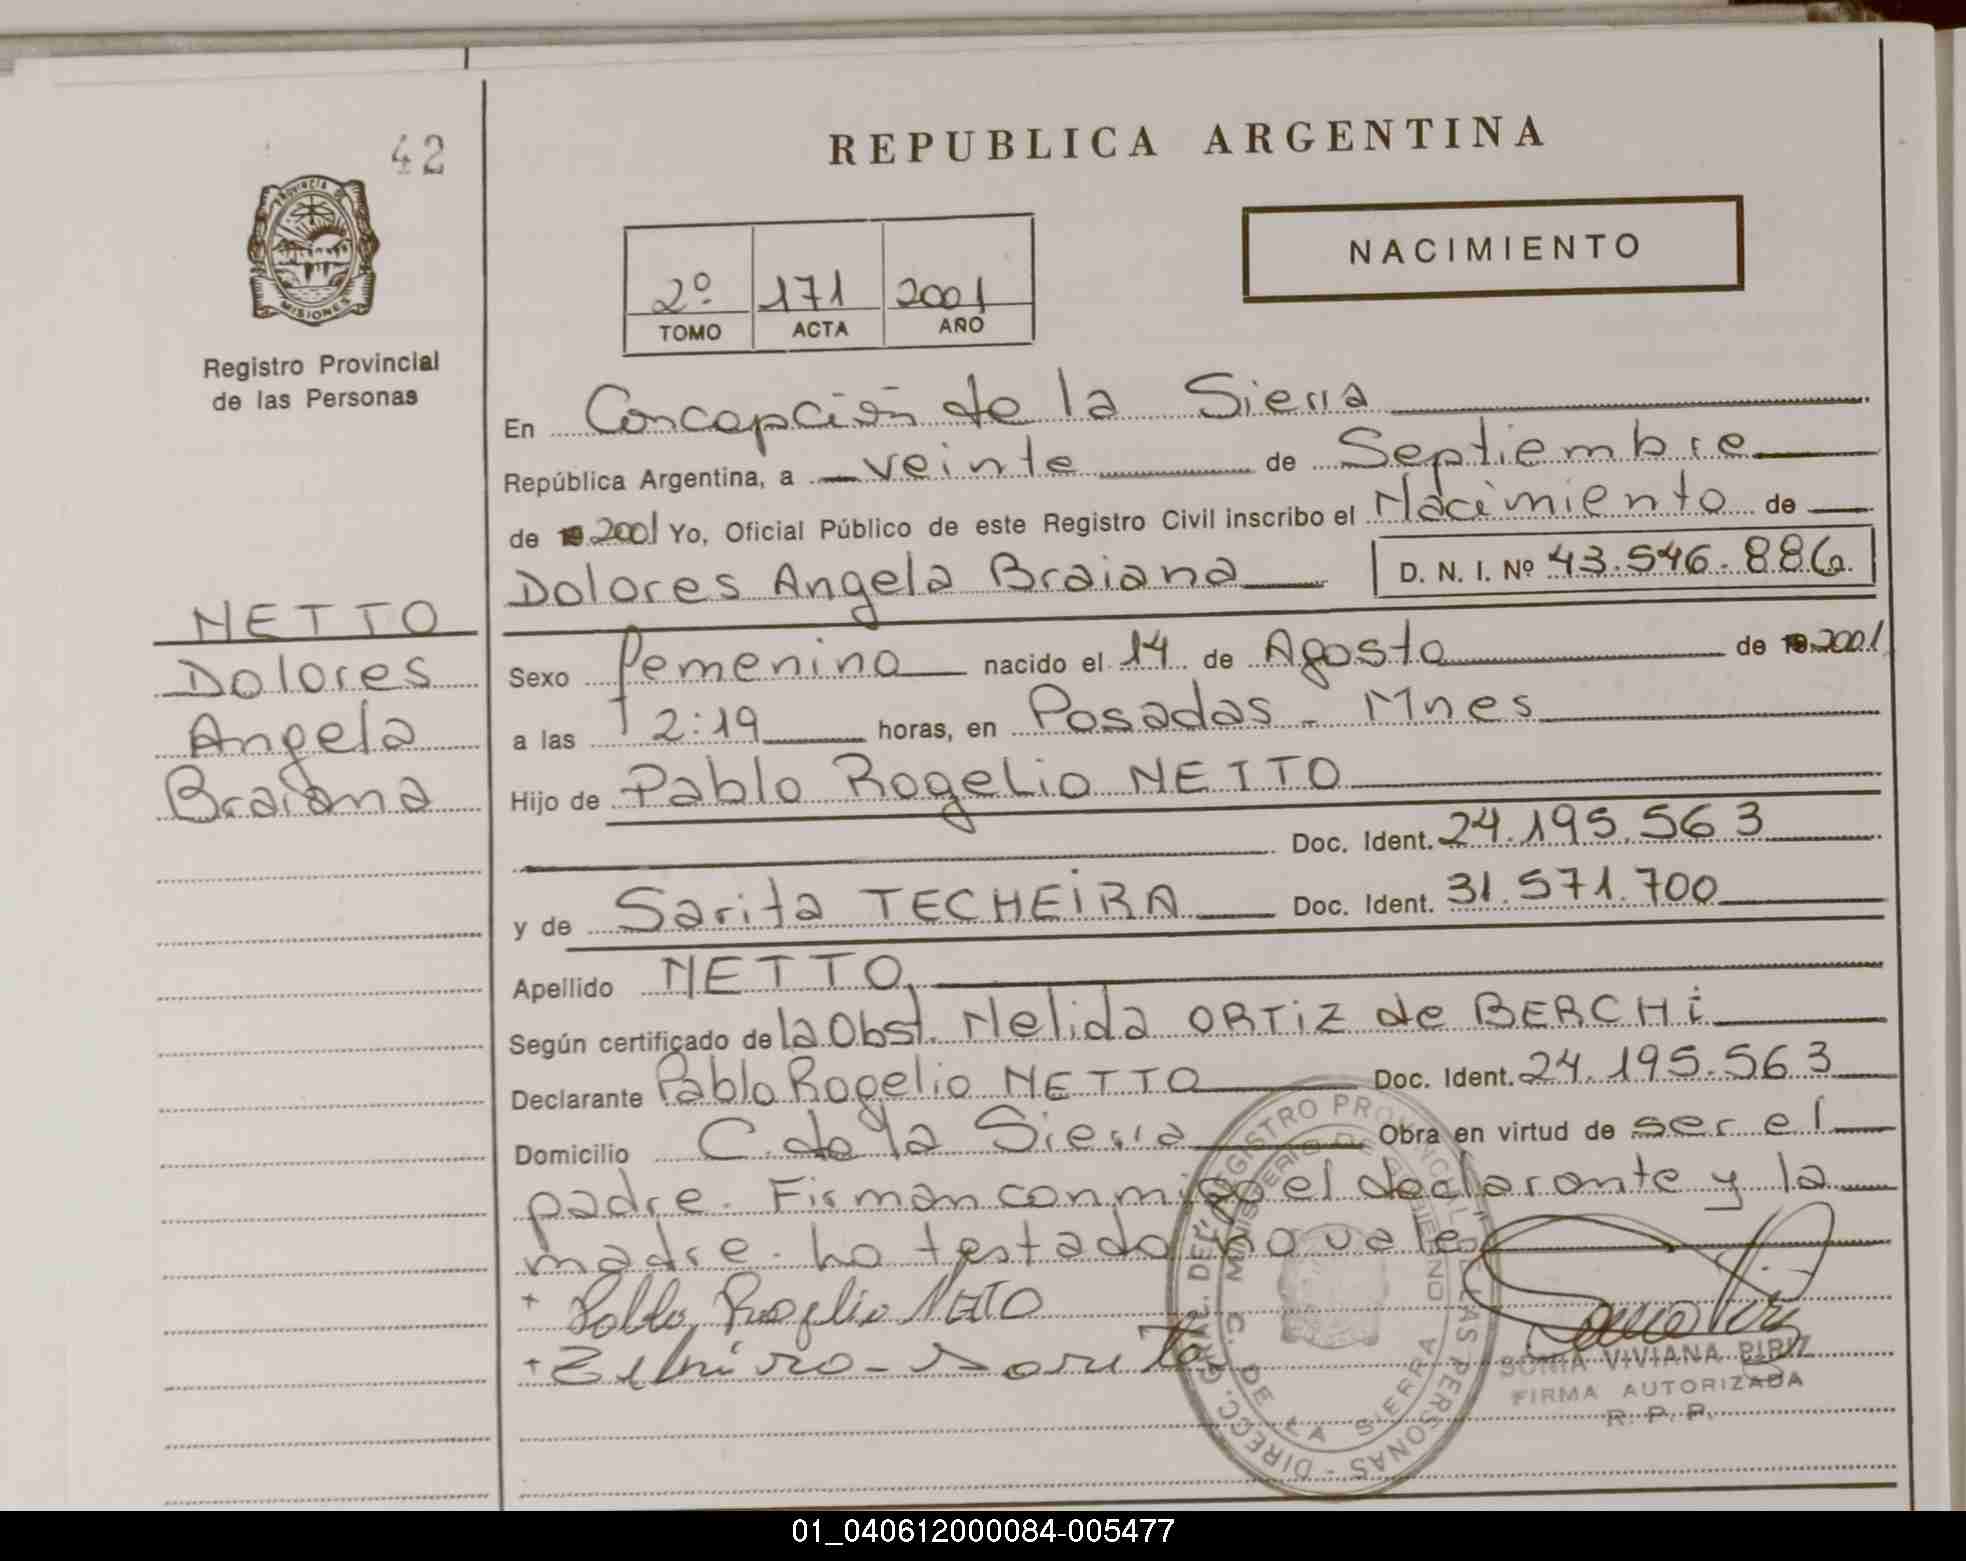 42
REPUBLICA ARGENTINA
PROVINCIA DE MISIONES
Registro Provincial
de las Personas
2º 171 2001
TOMO ACTA AÑO
NACIMIENTO
En Concepción de la Sierra
República Argentina, a veinte de Septiembre
de 19 2001 Yo, Oficial Público de este Registro Civil inscribo el Nacimiento de
Dolores Angela Braiana D. N. I. Nº 43.546.886
NETTO
Dolores
Angela
Braiana
Sexo femenino nacido el 14 de Agosto de 19 2001
a las 12:19 horas, en Posadas - Mnes
Hijo de Pablo Rogelio NETTO
Doc. Ident. 24.195.563
y de Sarita TECHEIRA Doc. Ident. 31.571.700
Apellido NETTO
Según certificado de la Obst. Nelida ORTIZ de BERCHI
Declarante Pablo Rogelio NETTO Doc. Ident. 24.195.563
Domicilio C. de la Sierra Obra en virtud de ser el
padre. Firman conmigo el declarante y la
madre. lo testado no vale
+ Pablo Rogelio Netto
+ Sarita
SONIA VIVIANA PIRIZ
FIRMA AUTORIZADA
R. P. P.
DIRECC. GRAL. DEL REGISTRO PROVINCIAL DE LAS PERSONAS
MINISTERIO DE GOBIERNO
C. DE LA SIERRA
01_040612000084-005477